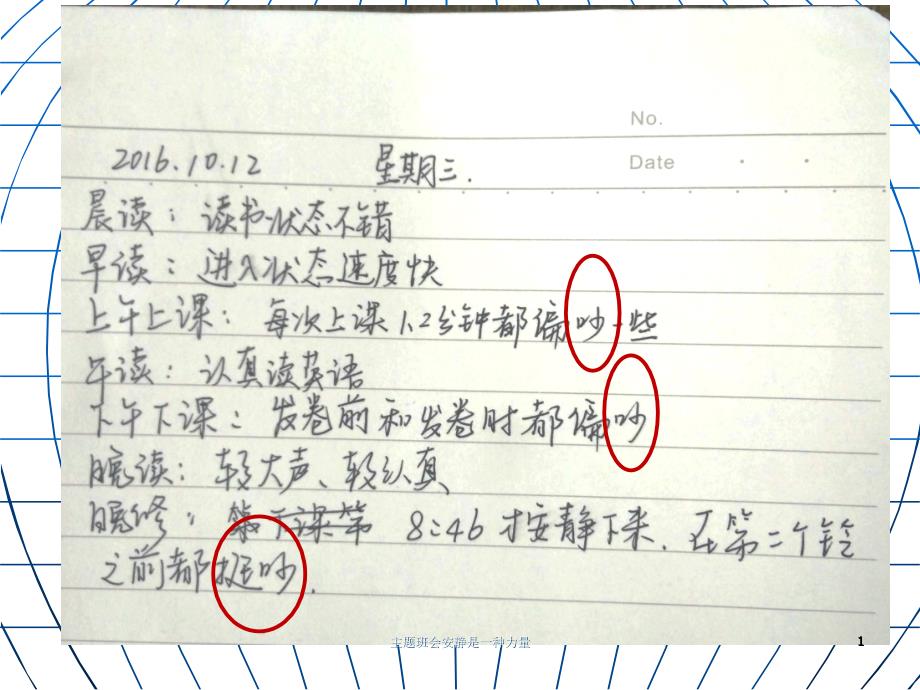 No.
Date
2016.10.12 星期三.
晨读：读书状态不错
早读：进入状态速度快
上午上课：每次上课1.2分钟都偏吵一些
午读：认真读英语
下午下课：发卷前和发卷时都偏吵
晚读：较大声、较认真
晚修：第下课第 8:46才安静下来.在第二个铃
之前都挺吵.
主题班会安静是一种力量
1